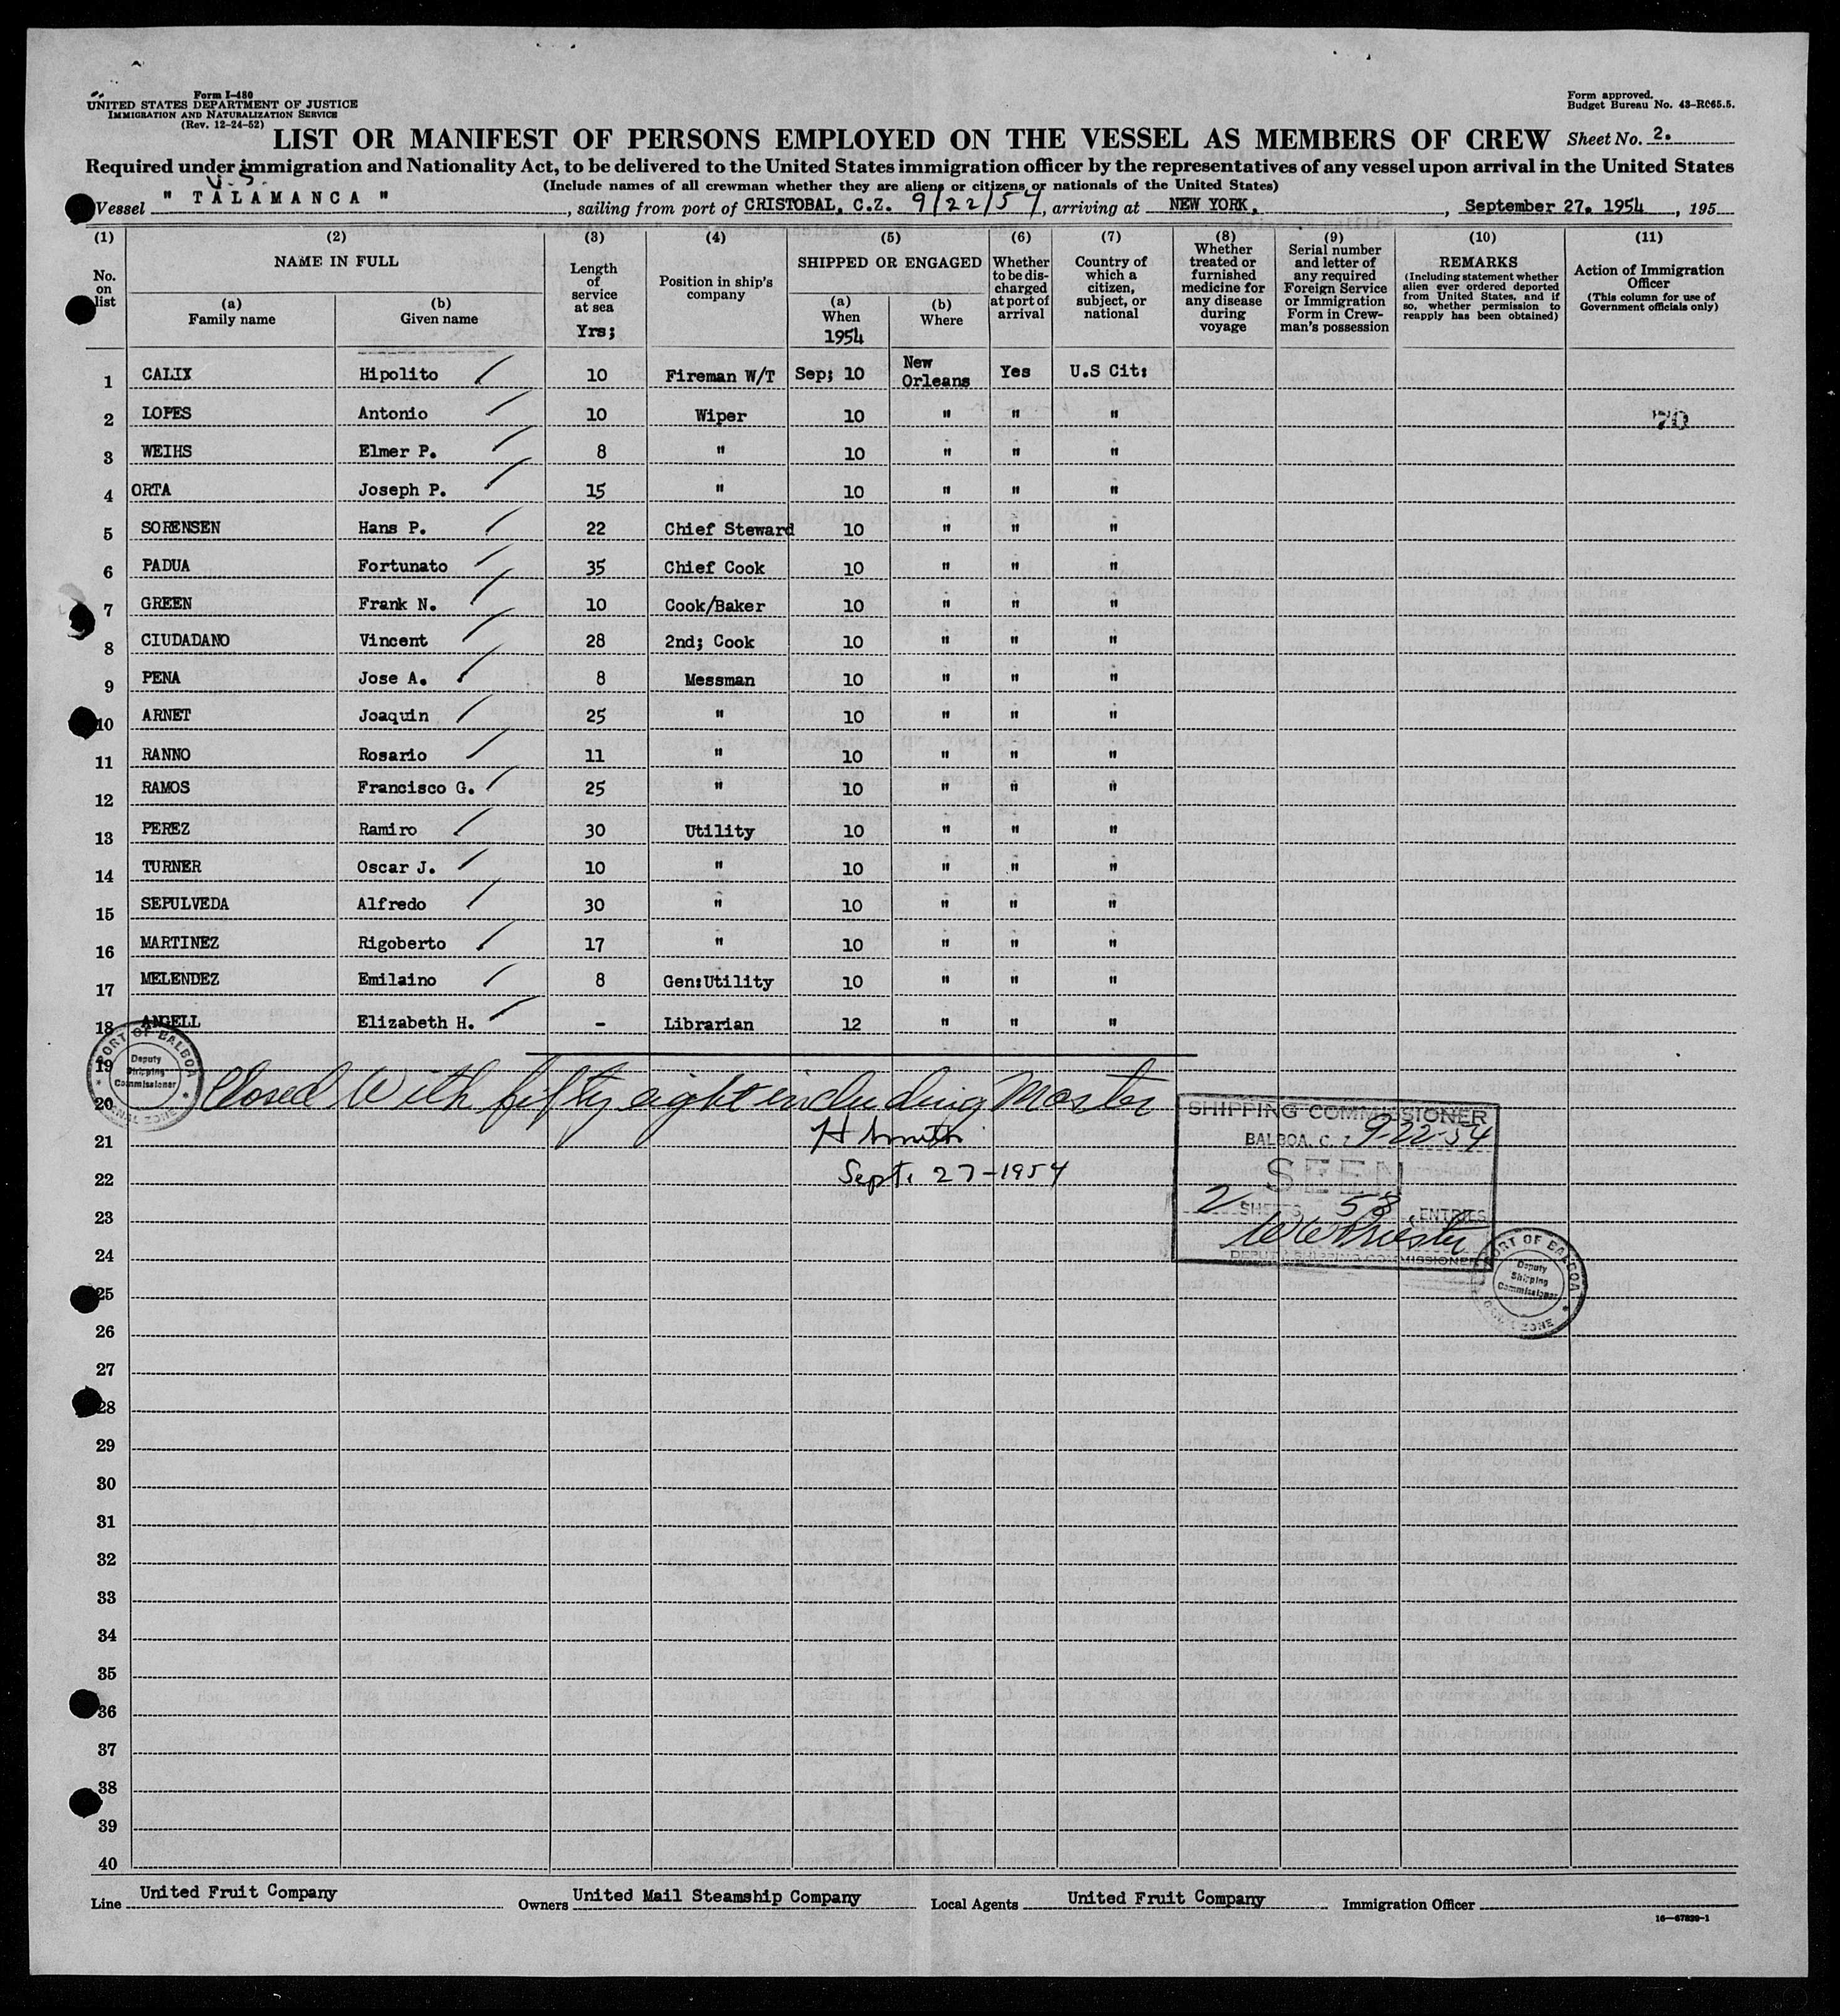 Form I-480
UNITED STATES DEPARTMENT OF JUSTICE
IMMIGRATION AND NATURALIZATION SERVICE
(Rev. 12-24-52)
Form approved.
Budget Bureau No. 43-R065.5.
LIST OR MANIFEST OF PERSONS EMPLOYED ON THE VESSEL AS MEMBERS OF CREW Sheet No. 2.
Required under immigration and Nationality Act, to be delivered to the United States immigration officer by the representatives of any vessel upon arrival in the United States
(Include names of all crewman whether they are aliens or citizens or nationals of the United States)
Vessel " TALAMANCA ", sailing from port of CRISTOBAL, C.Z. 9/22/54, arriving at NEW YORK, , September 27. 1954, 195
(1) (2) (3) (4) (5) (6) (7) (8) (9) (10) (11)
No. on list
NAME IN FULL
(a) Family name
(b) Given name
Length of service at sea
Yrs;
Position in ship's company
SHIPPED OR ENGAGED
(a) When
1954
(b) Where
Whether to be discharged at port of arrival
Country of which a citizen, subject, or national
Whether treated or furnished medicine for any disease during voyage
Serial number and letter of any required Foreign Service or Immigration Form in Crewman's possession
REMARKS
(Including statement whether alien ever ordered deported from United States, and if so, whether permission to reapply has been obtained)
Action of Immigration Officer
(This column for use of Government officials only)
1 CALIX Hipolito 10 Fireman W/T Sep; 10 New Orleans Yes U.S Cit:
2 LOPES Antonio 10 Wiper 10 " " " 70
3 WEIHS Elmer P. 8 " 10 " " "
4 ORTA Joseph P. 15 " 10 " " "
5 SORENSEN Hans P. 22 Chief Steward 10 " " "
6 PADUA Fortunato 35 Chief Cook 10 " " "
7 GREEN Frank N. 10 Cook/Baker 10 " " "
8 CIUDADANO Vincent 28 2nd; Cook 10 " " "
9 PENA Jose A. 8 Messman 10 " " "
10 ARNET Joaquin 25 " 10 " " "
11 RANNO Rosario 11 " 10 " " "
12 RAMOS Francisco G. 25 " 10 " " "
13 PEREZ Ramiro 30 Utility 10 " " "
14 TURNER Oscar J. 10 " 10 " " "
15 SEPULVEDA Alfredo 30 " 10 " " "
16 MARTINEZ Rigoberto 17 " 10 " " "
17 MELENDEZ Emilaino 8 Gen:Utility 10 " " "
18 ANGELL Elizabeth H. - Librarian 12 " " "
19
PORT OF BALBOA
Deputy Shipping Commissioner
CANAL ZONE
20 Closed With fifty eight including Master
21 H Smith
22 Sept. 27-1954
SHIPPING COMMISSIONER
BALBOA, C. Z. 9-22-54
SEEN
2 SHEETS 58 ENTRIES
DEPUTY SHIPPING COMMISSIONER
23
24
PORT OF BALBOA
Deputy Shipping Commissioner
CANAL ZONE
25
26
27
28
29
30
31
32
33
34
35
36
37
38
39
40
Line United Fruit Company Owners United Mail Steamship Company Local Agents United Fruit Company Immigration Officer
16—67829-1